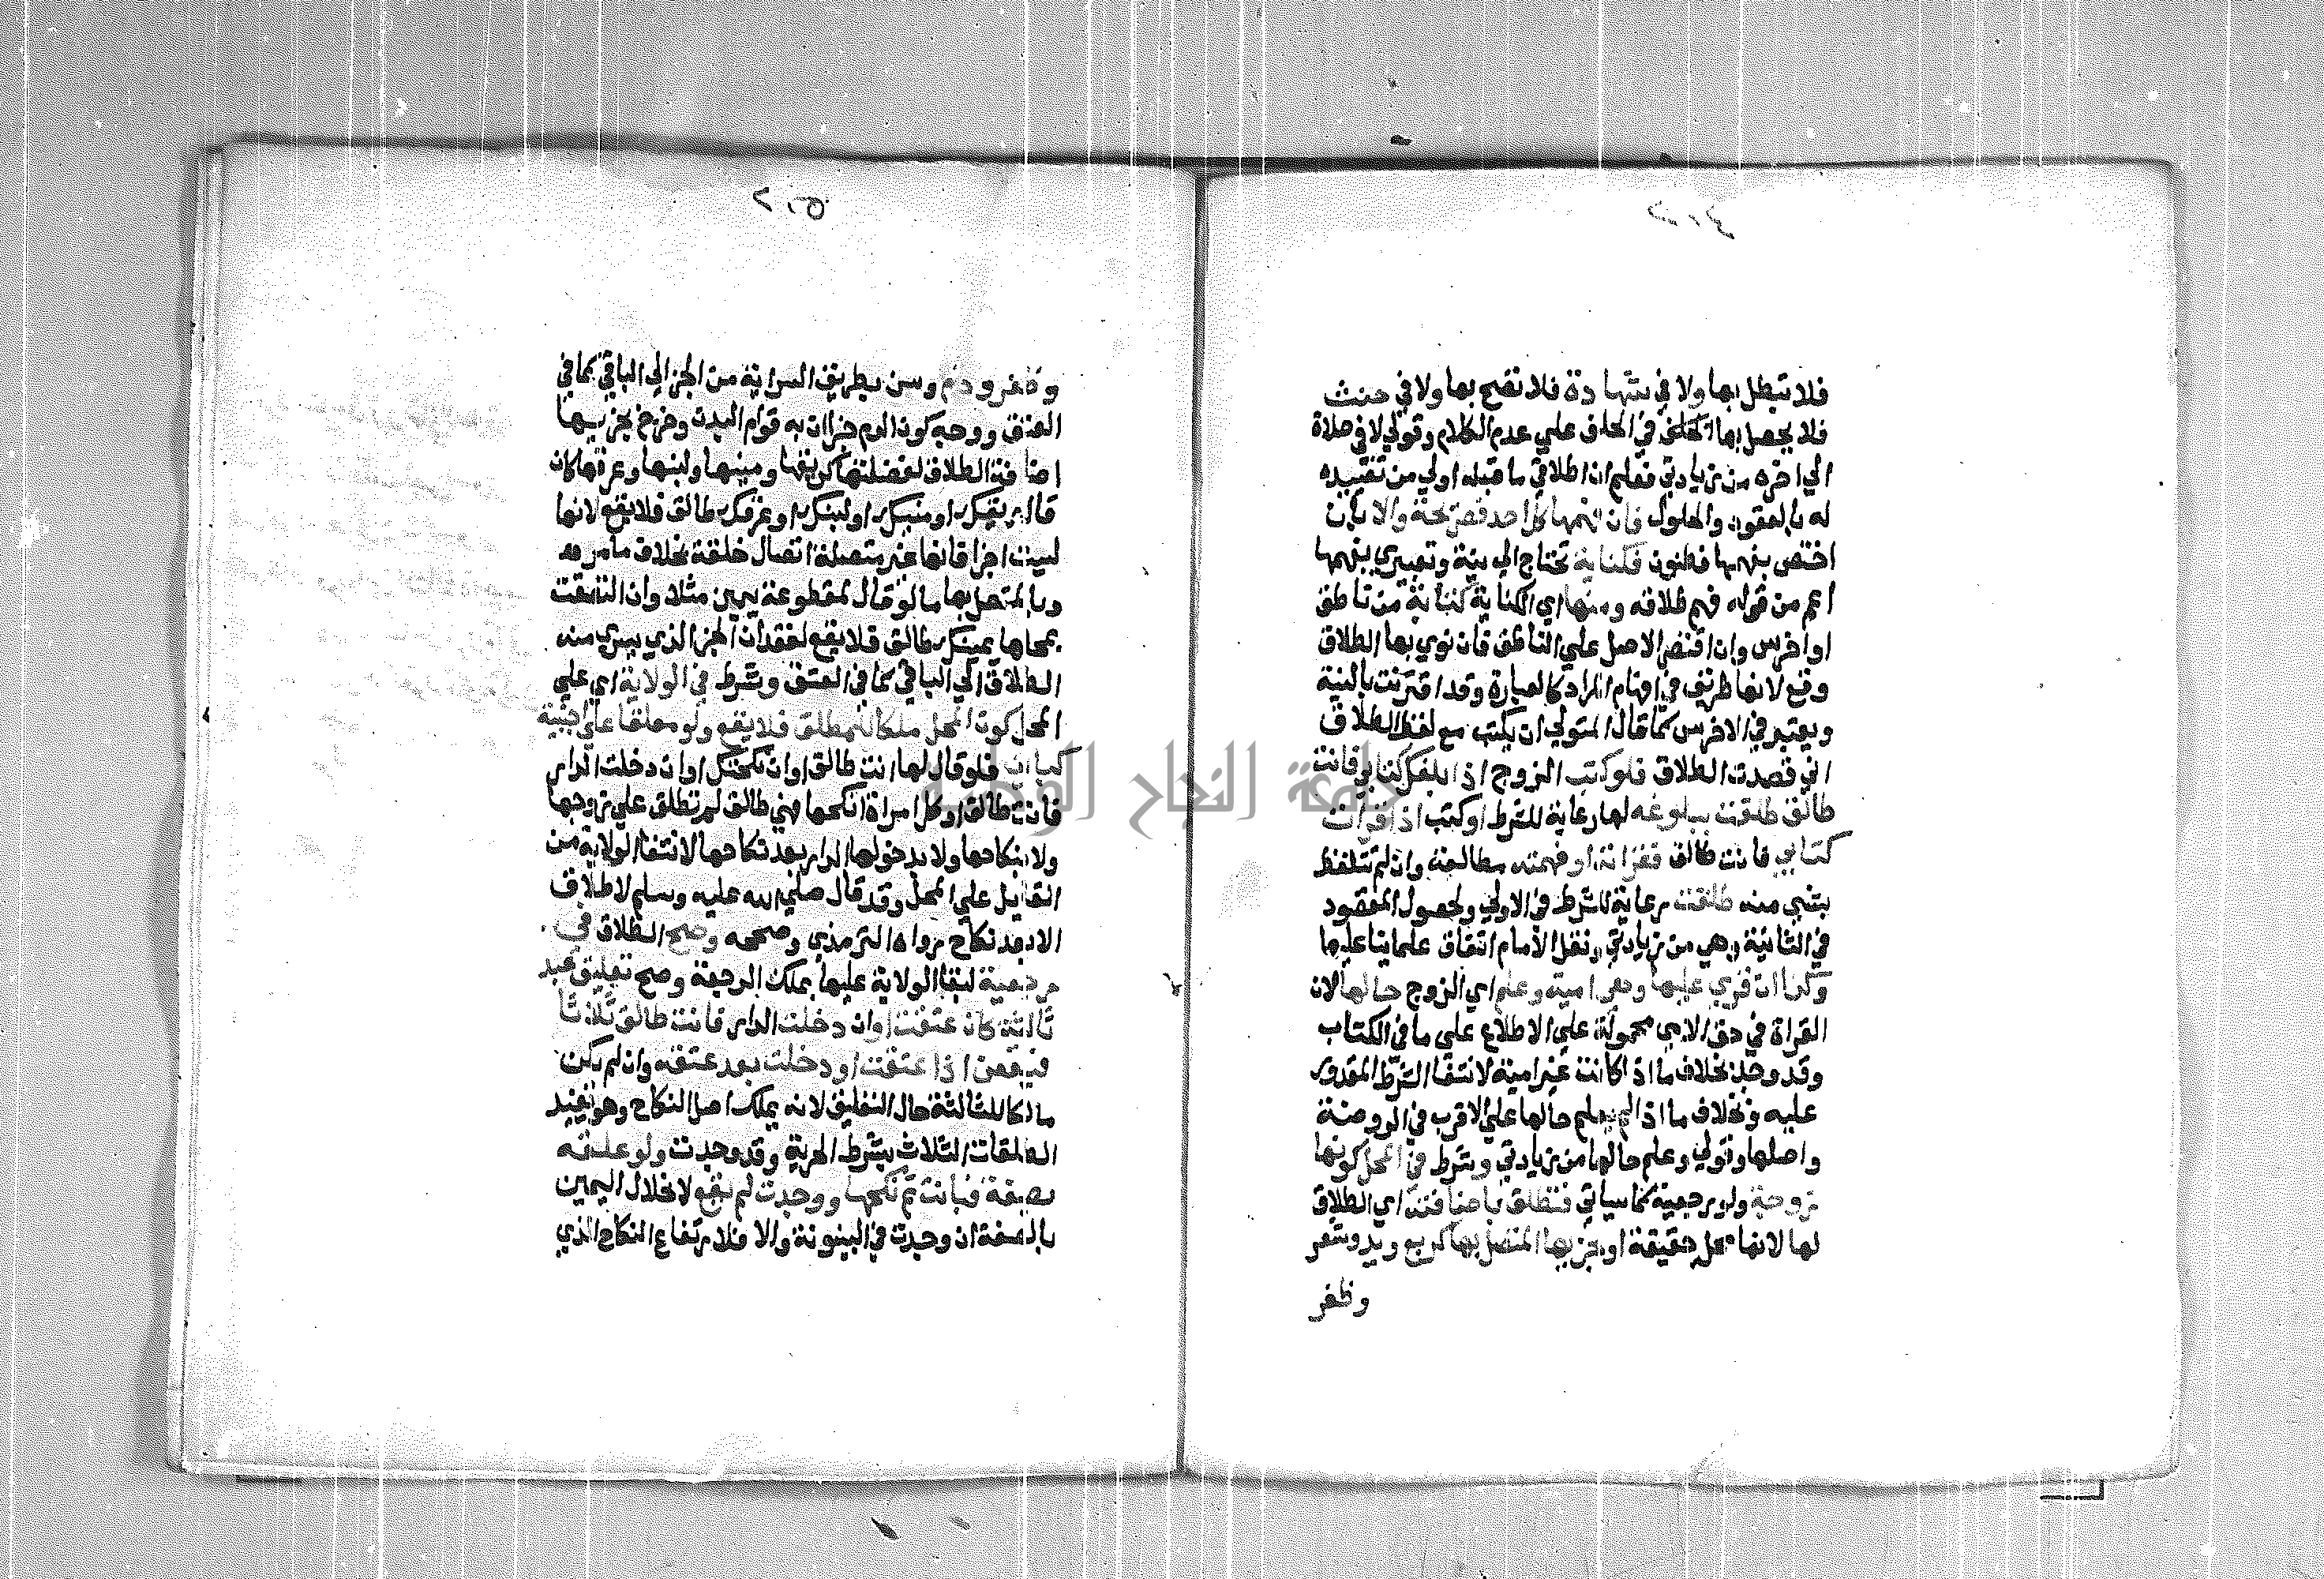 فلا تبطل بها ولا في شهادة فلا تصح بها ولا في حنث
فلا يحصل بها الحلف في الحلف علي عدم الكلام وقولي لا في صلاة
الي اخره من زيادتي فعلم ان اطلاقي ما قبله اولي من تقييده
له بالعقود والحلول فان فهمها كل احد فصريحة والا بان
اختص بفهمها فطنون فكناية تحتاج الي نية وتعبيري بفهمها
اعم من قوله فهم طلاقه ومنها اي الكناية كتابة من ناطق
او اخرس وان اقتضي الاصل علي الناطق فان نوي بها الطلاق
وقع لانها طريق في افهام المراد كالعبارة وقد اقترنت بالنية
ويعتبر في الاخرس كما قال المتولي ان يكتب مع لفظ الطلاق
اني قصدت الطلاق فلو كتب الزوج اذا بلغك كتابي فانت
طالق طلقت ببلوغه لها رعاية للشرط او كتب اذا قرات
كتابي فانت طالق فقراته او فهمته مطالعة وان لم تتلفظ
بشي منه طلقت رعاية للشرط في الاولي ولحصول المقصود
في الثانية وهي من زيادتي ونقل الامام اتفاق علمائنا عليها
وكذا ان قري عليها وهي امية وعلم اي الزوج حالها لان
القراة في حق الامي محمولة علي الاطلاع علي ما في الكتاب
وقد وجد بخلاف ما اذا كانت غير امية لانتفا الشرط المقدور
عليه وبخلاف ما اذا لم يعلم حالها علي الاقرب في الروضة
واصلها وقولي وعلم حالها من زيادتي وشرط في المحل كونها
زوجة ولو رجعية كما سياتي فتطلق باضافته اي الطلاق
لها لانها محل حقيقة او جزيها المتصل بها كربع ويد وشعر
وظفر
وظفر ودم وسن بطريق السراية من الجز الي الباقي كما في
العتق ووجه كون الدم جزا ان به قوام البدن وخرج بجزيها
اضافة الطلاق لفضلتها كريقها ومنيها ولبنها وعرقها كان
قال ريقك او منيك او لبنك او عرقك طالق فلا يقع لانها
ليست اجزا فانها غير متصلة اتصال خلقة بخلاف ما مر
وبالمتصل بها ما لو قال لمقطوعة يمين مثلا وان التصقت
بمحلها يمينك طالق فلا يقع لفقدان الجز الذي يسري منه
الطلاق الي الباقي كما في العتق وشرط في الولاية اي علي
المحل كون المحل ملكا للمطلق فلا يقع ولو معلقا علي اجنبية
كباين فلو قال لها انت طالق او ان نكحتك او ان دخلت الدار
فانت طالق او كل امراة انكحها فهي طالق لم تطلق علي زوجها
ولا بنكاحها ولا بدخولها الدار بعد نكاحها لانتفا الولاية من
القايل علي المحل وقد قال صلي الله عليه وسلم لا طلاق
الا بعد نكاح رواه الترمذي وصححه وصح الطلاق في
رجعية لبقا الولاية عليها بملك الرجعة وصح تعليق عبد
ثالثة كان عتقت او ان دخلت الدار فانت طالق ثلاثا
فيقعن اذا عتقت او دخلت بعد عتقه وان لم يكن
مالكا للثالثة حال التعليق لانه يملك اصل النكاح وهو يفيد
الطلقات الثلاث بشرط الحرية وقد وجدت ولو علقه
بصفة فبانت ثم نكحها ووجدت لم يقع لانحلال اليمين
بالصفة ان وجدت في البينونة والا فلارتفاع النكاح الذي